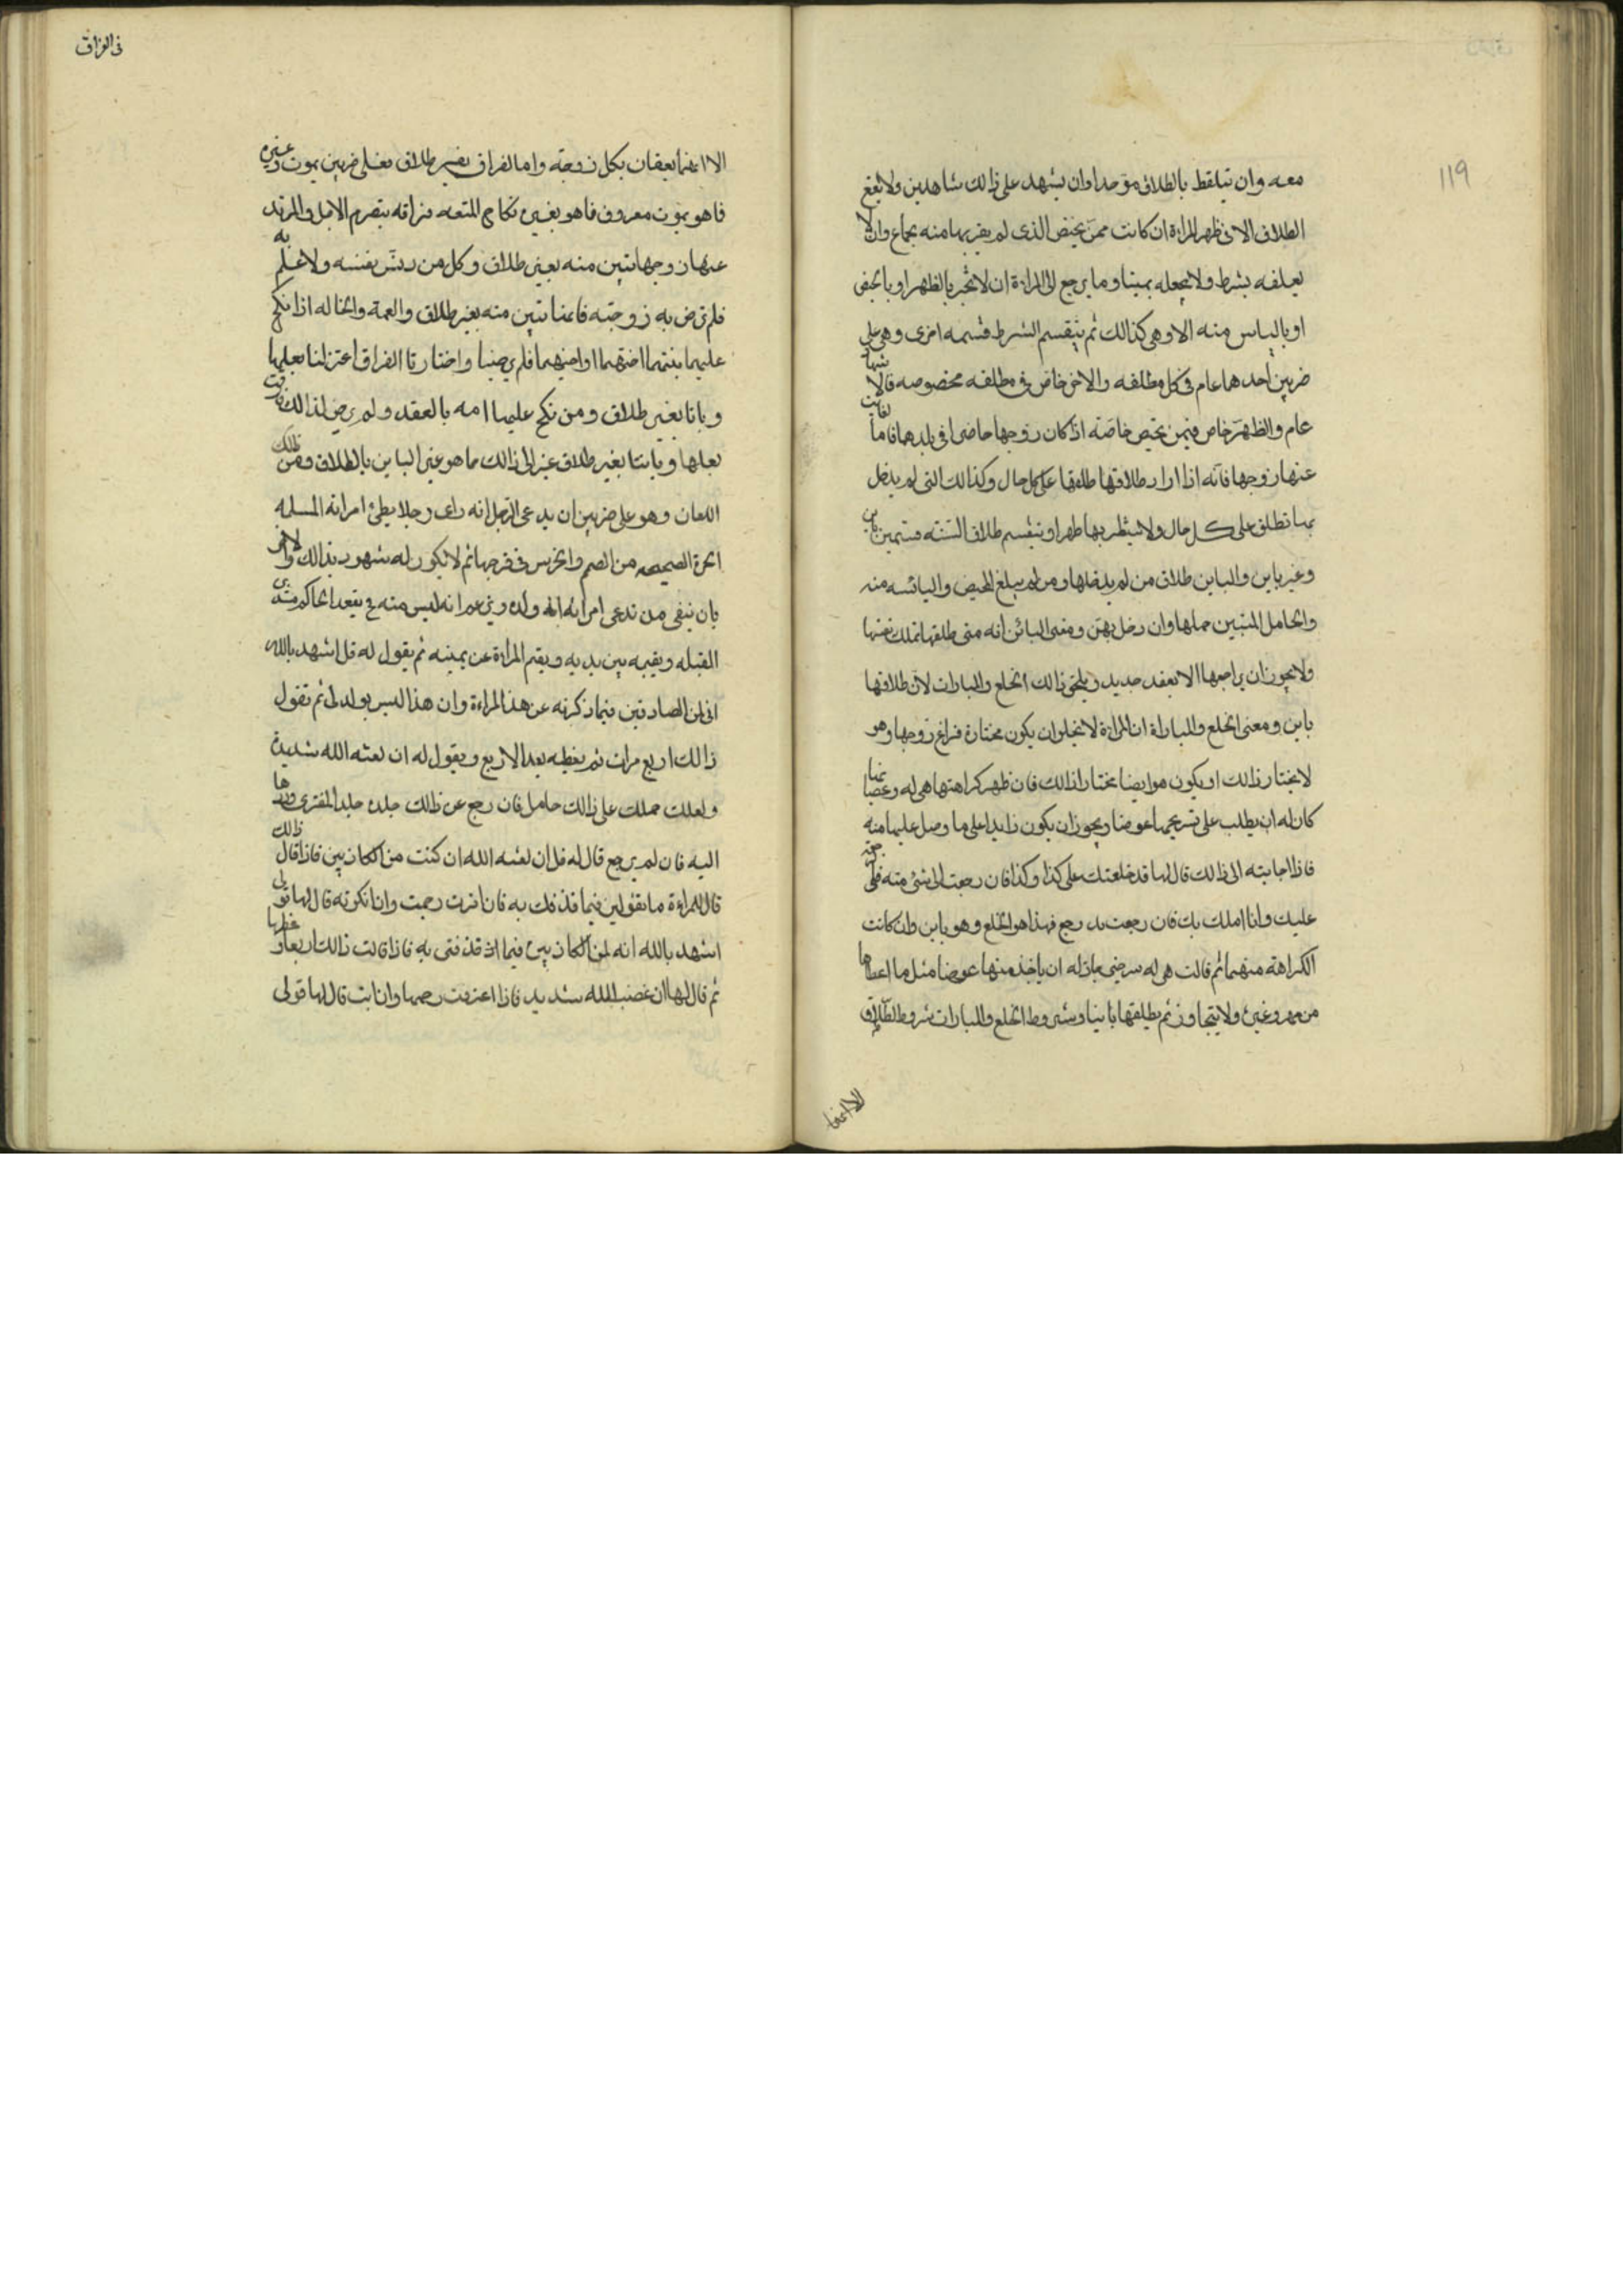 ١١٩
معه وان يتلفظ بالطلاق موحدا وان يشهد على ذالك شاهدين ولا يقع
الطلاق الا فى طهر المراءة ان كانت ممن تحيض الذى لم يقربها منه بجماع وان لا
يعلقه بشرط ولا يجعله يمينا وما يرجع الى المراءة ان لا تخبر بالطهر او بالحيض
او بالياس منه الا وهى كذالك ثم ينقسم الشرط قسمه اخرى وهى على
ضربين احدهما عام فى كل مطلقه والاخر خاص فى مطلقه مخصوصه فالاشهاد
عام والطهر خاص فيمن تحيض خاصة اذا كان زوجها حاضرا فى بلدها فاما الغائب
عنها زوجها فانه اذا اراد طلاقها طلقها على كل حال وكذالك التى لم يدخل
بها تطلق على كل حال ولا ينتظر بها طهرا وينقسم طلاق السنة قسمين باين
وغير باين والباين طلاق من لم يدخلها ومن لم يبلغ المحيض واليائسه منه
والحامل المتبين حملها وان دخل بهن ومعنى البائن انه متى طلقها تملك نفسها
ولا يجوز ان يراجعها الا بعقد جديد ويلحق ذالك الخلع والمبارات لان طلاقها
باين ومعنى الخلع والمباراة ان المراءة لا تخلو ان يكون مختارة فراغ زوجها وهو
لا يختار ذالك او يكون هو ايضا مختارا ذالك فان ظهر كراهتها هى له وعصيانها
كان له ان يطلب على تسريحها عوضا ويجوز ان يكون زايدا على ما وصل عليها منه
فاذا اجابته الى ذالك قال لها قد خلعتك على كذا وكذا فان رجعت الى شئ منه فلى
عليك وانا املك بك فان رجعت به رجع فهذا هو الخلع وهو باين وان كانت
الكراهة منهما ثم قالت هى له سرحنى جاز له ان ياخذ منها عوضا مثل ما اعطاها
من مهر وغيره ولا يتجاوز ثم يطلقها باينا وشروط الخلع والمبارات شروط الطلاق
الا انهما
فى الفراق
الا انهما يقعان بكل زوجة واما الفراق بغير طلاق فعلى ضربين بموت وغيره
فما هو بموت معروف فما هو بغيره نكاح المتعه فراقه بتصرم الاجل والمرتد
عنها زوجها تبين منه بغير طلاق وكل من دلس بنفسه ولا علم به
فلم ترض به زوجته فانها تبين منه بغير طلاق والعمة والخاله اذا نكح
عليهما بنت اختهما او اخيهما فلم يرضيا واختارتا الفراق اعتزلتا بعلهما
وبانتا بغير طلاق ومن نكح عليها امه بالعقد ولم يرض لذالك فارقت
بعلها وبانتا بغير طلاق غير الى ذالك مما هو غير الباين بالطلاق ومن ذالك
اللعان وهو على ضربين ان يدعى الرجل انه راى رجلا يطئ امراته المسلمه
الحرة الصحيحه من الصم والخرس فى فرجها ثم لا يكون له شهود بذالك والاخر
بان ينفى من تدعى امراته انه ولده ويزعم انه ليس منه فيقعد الحاكم مستدبر
القبله ويقيمه بين يديه ويقيم المراءة عن يمينه ثم يقول له قل اشهد بالله
انى لمن الصادقين فيما ذكرته عن هذا المراءة وان هذا ليس بولد لى ثم تقول
ذالك اربع مرات ثم يعظه بعد الاربع ويقول له ان لعنه الله شديدة
ولعلك حملك على ذالك حامل فان رجع عن ذالك جلده جلد المفترى وردها
اليه فان لم يرجع قال له قل ان لعنه الله ان كنت من الكاذبين فاذا قال ذالك
قال للمراءة ما تقولين فيما قذفك به فان اقرت رجمت وان انكرته قال لها قولى
اشهد بالله انه لمن الكاذبين فيما انه قذفنى به فاذا قالت ذالك اربعا وعظها
ثم قال لها ان غضب الله شديد فاذا اعترفت رجمها وان ابت قال لها قولى